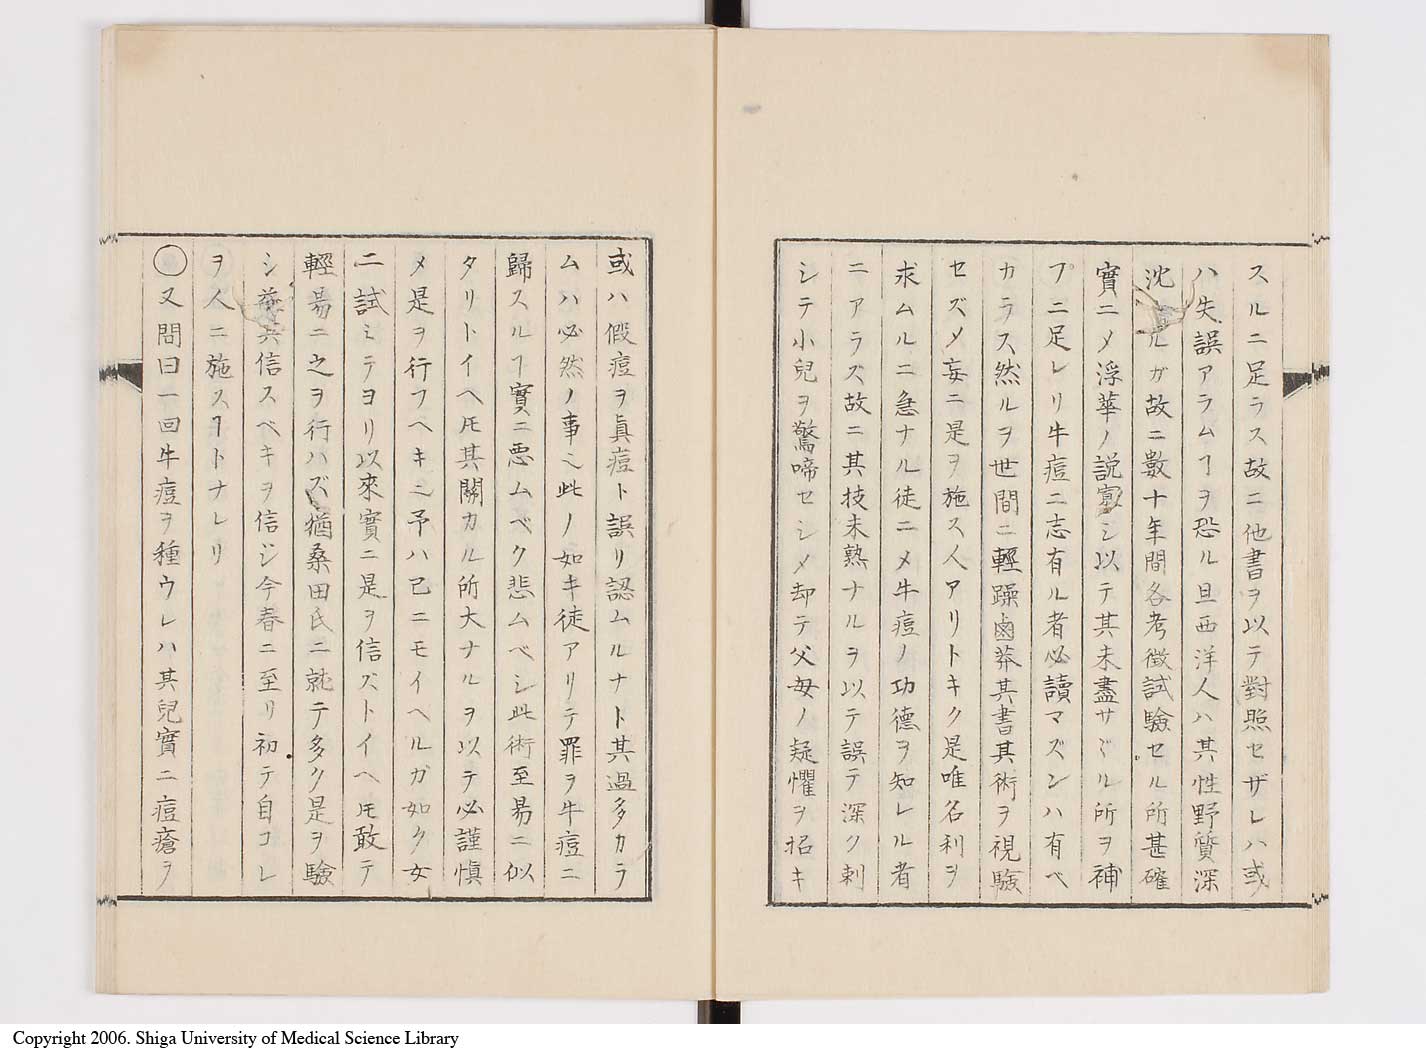 スルニ足ラス故ニ他書ヲ以テ對照セザレハ或
ハ失誤アラムヿヲ恐ル且西洋人ハ其性野質深
沈ルガ故ニ數十年間各考徴試驗セル所甚確
實ニメ浮華ノ説寡シ以テ其未盡サヾル所ヲ補
フニ足レリ牛痘ニ志有ル者必讀マズンハ有ベ
カラス然ルヲ世間ニ輕躁鹵莽其書其術ヲ視驗
セズメ妄ニ是ヲ施ス人アリトキク是唯名利ヲ
求ムルニ急ナル徒ニメ牛痘ノ功德ヲ知レル者
ニアラズ故ニ其技未熟ナルヲ以テ誤テ深ク刺
シテ小兒ヲ驚啼セシメ却テ父母ノ疑懼ヲ招キ
或ハ假痘ヲ眞痘ト誤リ認ムルナト其過多カラ
ムハ必然ノ事也此ノ如キ徒アリテ罪ヲ牛痘ニ
歸スルヿ實ニ悪ムベク悲ムベシ此術至易ニ似
タリトイヘ𪜈其關カル所大ナルヲ以テ必謹愼
メ是ヲ行フヘキ也予ハ已ニモイヘルガ如ク女
二試ミテヨリ以來實ニ是ヲ信ズトイヘ𪜈敢テ
輕易ニ之ヲ行ハズ猶桑田氏ニ就テ多ク是ヲ驗
シ益其信スベキヲ信ジ今春ニ至リ初テ自コレ
ヲ人ニ施スヿトナレリ
○又問曰一回牛痘ヲ種ウレハ其兒實ニ痘瘡ヲ
Copyright 2006. Shiga University of Medical Science Library